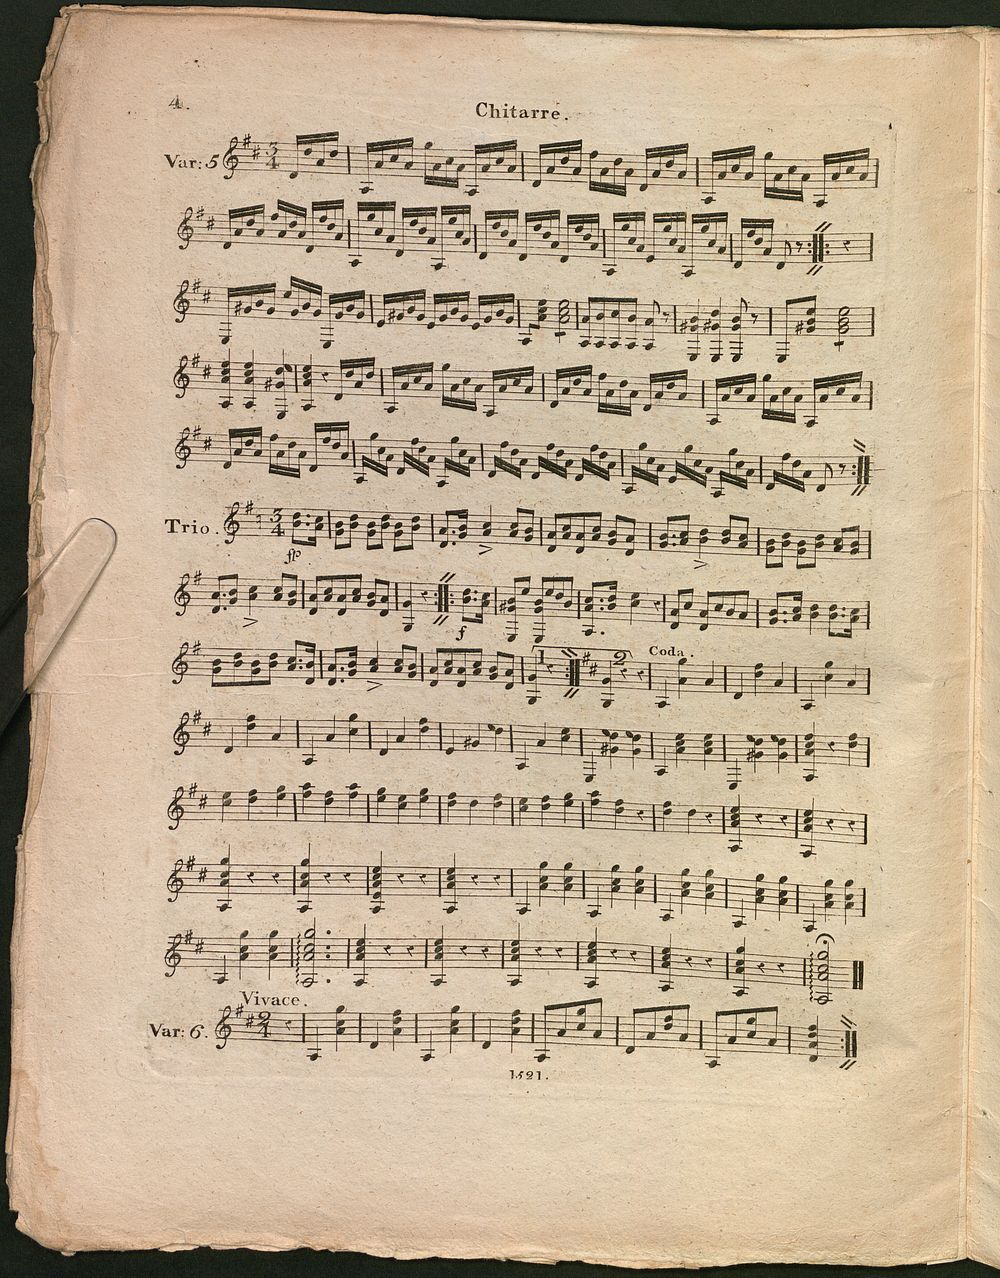 4.
Chitarre.
Var: 5
Trio.
fp
f
1 2 Coda.
Vivace.
Var: 6.
1521.